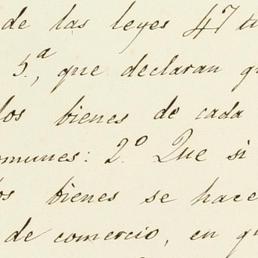 de las leyes 47
5.ª, que declaran
los bienes de cada
comunes: 2.º Que si
los bienes se hace
de comercio, en